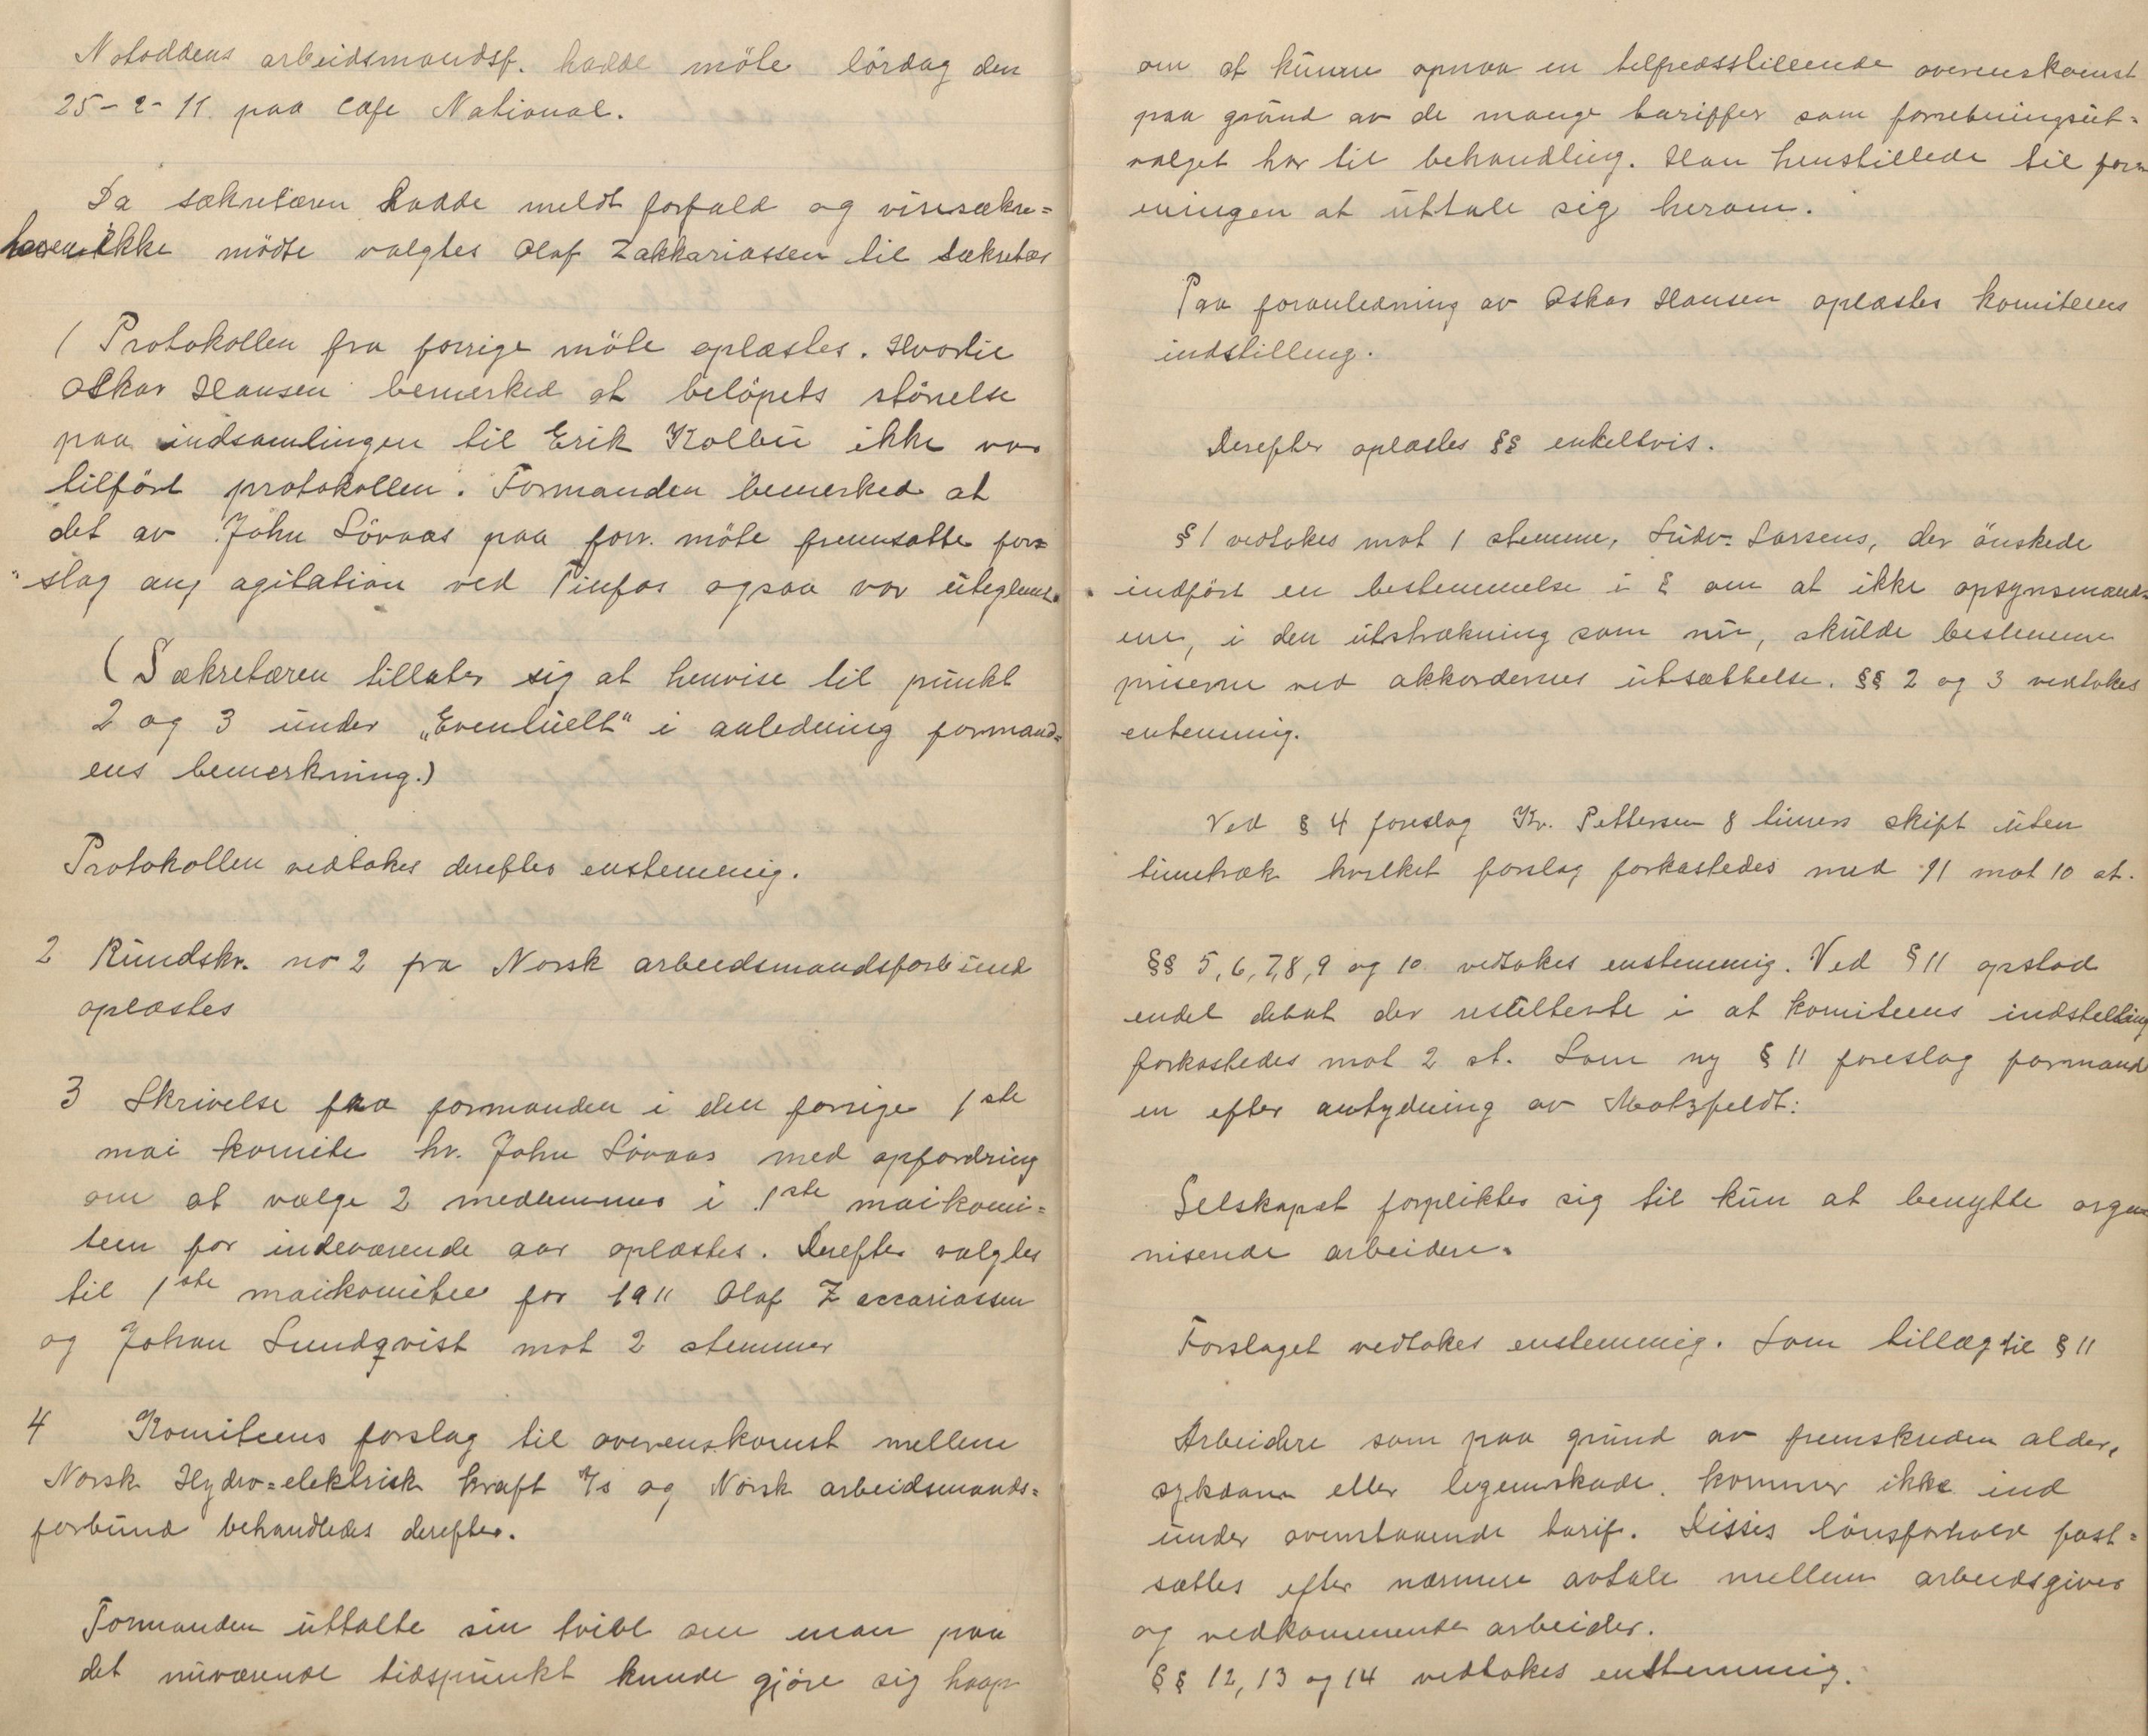 Notoddens arbeidsmandsf. hadde möte lördag den
25-2-11 paa Cafe National.
Da sækretæren hadde meldt forfald og visesækre=
tæren ikke mödte valgtes Olaf Zakkariassen til sækretær
1 Protokollen fra forrige möte oplæstes. Hvortil
Oskar Hansen bemerked at belöpets störrelse
paa indsamlingen til Erik Kolbu ikke var
tilfört protokollen. Formanden bemerked at
det av John Lövaas paa forr. möte fremsatte for=
slag ang agitation ved Tinfos ogsaa var uteglemt.
(Sækretæren tillater sig at henvise til punkt
2 og 3 under „Eventuelt" i anledning formand=
ens bemerkning.)
Protokollen vedtokes derefter enstemmig.
2 Rundskr. no 2 fra Norsk arbeidsmandsforbund
oplæstes
3 Skrivelse fra formanden i den forrige 1ste
mai komite hr. John Lövaas med opfordring
om at vælge 2 medlemmer i 1ste maikomi=
teen for indeværende aar oplæstes. Derefter valgtes
til 1ste maikomitee for 1911 Olaf Zaccariassen
og Johan Lundqvist mot 2 stemmer
4 Komiteens forslag til overenskomst mellem
Norsk Hydro=elektrisk kraft A/s og Norsk arbeidsmands=
forbund behandledes derefter.
Formanden uttalte sin tvivl om man paa
det nuværende tidspunkt kunde gjöre sig haap
om at kunne opnaa en tilfredsstillende overenskomst
paa grund av de mange tariffer som forretningsut=
valget har til behandling. Han henstillede til for
eningen at uttale sig herom.
Paa foranledning av Oskar Hansen oplæstes komiteens
indstilling.
Derefter oplæstes §§ enkeltvis.
§ 1 vedtokes mot 1 stemme, Ludv. Larsens, der önskede
indfört en bestemmelse i § om at ikke opsynsmænd=
ene, i den utstrækning som nu, skulde bestemme
priserne ved akkordernes utsættelse. §§ 2 og 3 vedtokes
enstemmig.
Ved § 4 foreslog Kr. Pettersen 8 timers skift uten
timetræk hvilket forslag forkastedes med 91 mot 10 st.
§§ 5, 6, 7, 8, 9 og 10 vedtokes enstemmig. Ved § 11 opstod
endel debat der resulterte i at komiteens indstilling
forkastedes mot 2 st. Som ny § 11 foreslog formand
en efter antydning av Motzfeldt:
Selskapet forpliktes sig til kun at benytte orga
niserede arbeidere.
Forslaget vedtokes enstemmig. Som tillæg til § 11
Arbeidere som paa grund av fremskreden alder,
sykdom eller legemskade, kommer ikke ind
under ovenstaaende tarif. Disses lönsforhold fast=
sættes efter nærmere avtale mellem arbeidsgiver
og vedkommende arbeider.
§§ 12, 13 og 14 vedtokes enstemmig.